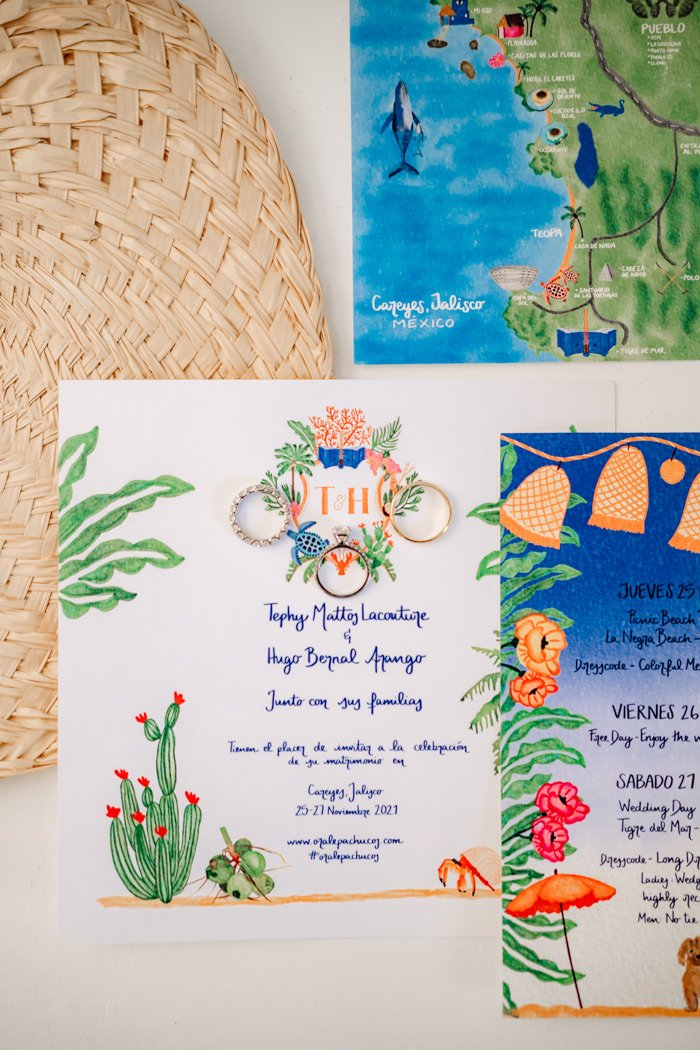 MI OJO
PLAYARDIA
CASITAS DE LAS FLORES
HOTEL EL CARETES
SOL DE
ORIENTE
COCODRILO
AZUL
OCCIDENTE
PUEBLO
TEOPA
CASA DE NADA
CABEZA
DE INDIO
POLO
COPA DEL
SOL
SANTUARIO
DE LAS TORTUGAS
TIGRE DE MAR
ENTR
AL P
Careyes, Jalisco
MÉXICO
T&H
Tephy Mattos Lacouture
&
Hugo Bernal Arango
Junto con sus familias
Tienen el placer de invitar a la celebración
de su matrimonio en
Careyes, Jalisco
25-27 Noviembre 2021
www.oralepachucos.com
#oralepachucos
JUEVES 25
Picnic Beach
La Negra Beach -
Dresscode - Colorful Me
VIERNES 26
Free Day - Enjoy the w
SABADO 27
Wedding Day
Tigre del Mar -
Dresscode - Long Dr
Ladies: Wedg
highly rec
Men: No tie